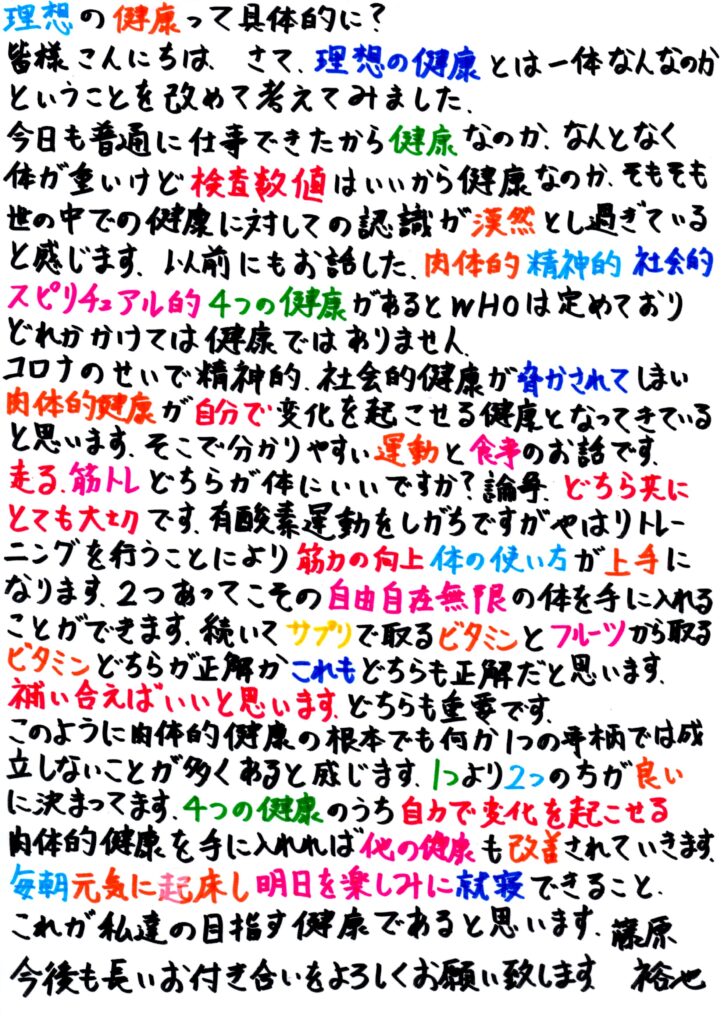 理想の健康って具体的に?
皆様こんにちは、さて、理想の健康とは一体なんなのか
ということを改めて考えてみました、
今日も普通に仕事できたから健康なのか、なんとなく
体が重いけど検査数値はいいから健康なのか、そもそも
世の中での健康に対しての認識が漠然とし過ぎている
と感じます、以前にもお話した、肉体的精神的社会的
スピリチュアル的4つの健康があるとWHOは定めており
どれかかけては健康ではありません、
コロナのせいで精神的、社会的健康が脅かされてしまい
肉体的健康が自分で変化を起こせる健康となってきている
と思います、そこで分かりやすい運動と食事のお話です、
走る、筋トレどちらが体にいいですか?論争、どちら共に
とても大切です、有酸素運動をしがちですがやはりトレー
ニングを行うことにより筋力の向上体の使い方が上手に
なります、2つあってこその自由自在無限の体を手に入れる
ことができます、続いてサプリで取るビタミンとフルーツから取る
ビタミンどちらが正解かこれもどちらも正解だと思います、
補い合えばいいと思います、どちらも重要です、
このように肉体的健康の根本でも何か1つの事柄では成
立しないことが多くあると感じます、1つより2つの方が良い
に決まってます、4つの健康のうち自力で変化を起こせる
肉体的健康を手に入れれば他の健康も改善されていきます、
毎朝元気に起床し明日を楽しみに就寝できること、
これが私達の目指す健康であると思います、藤原
今後も長いお付き合いをよろしくお願い致します 裕也